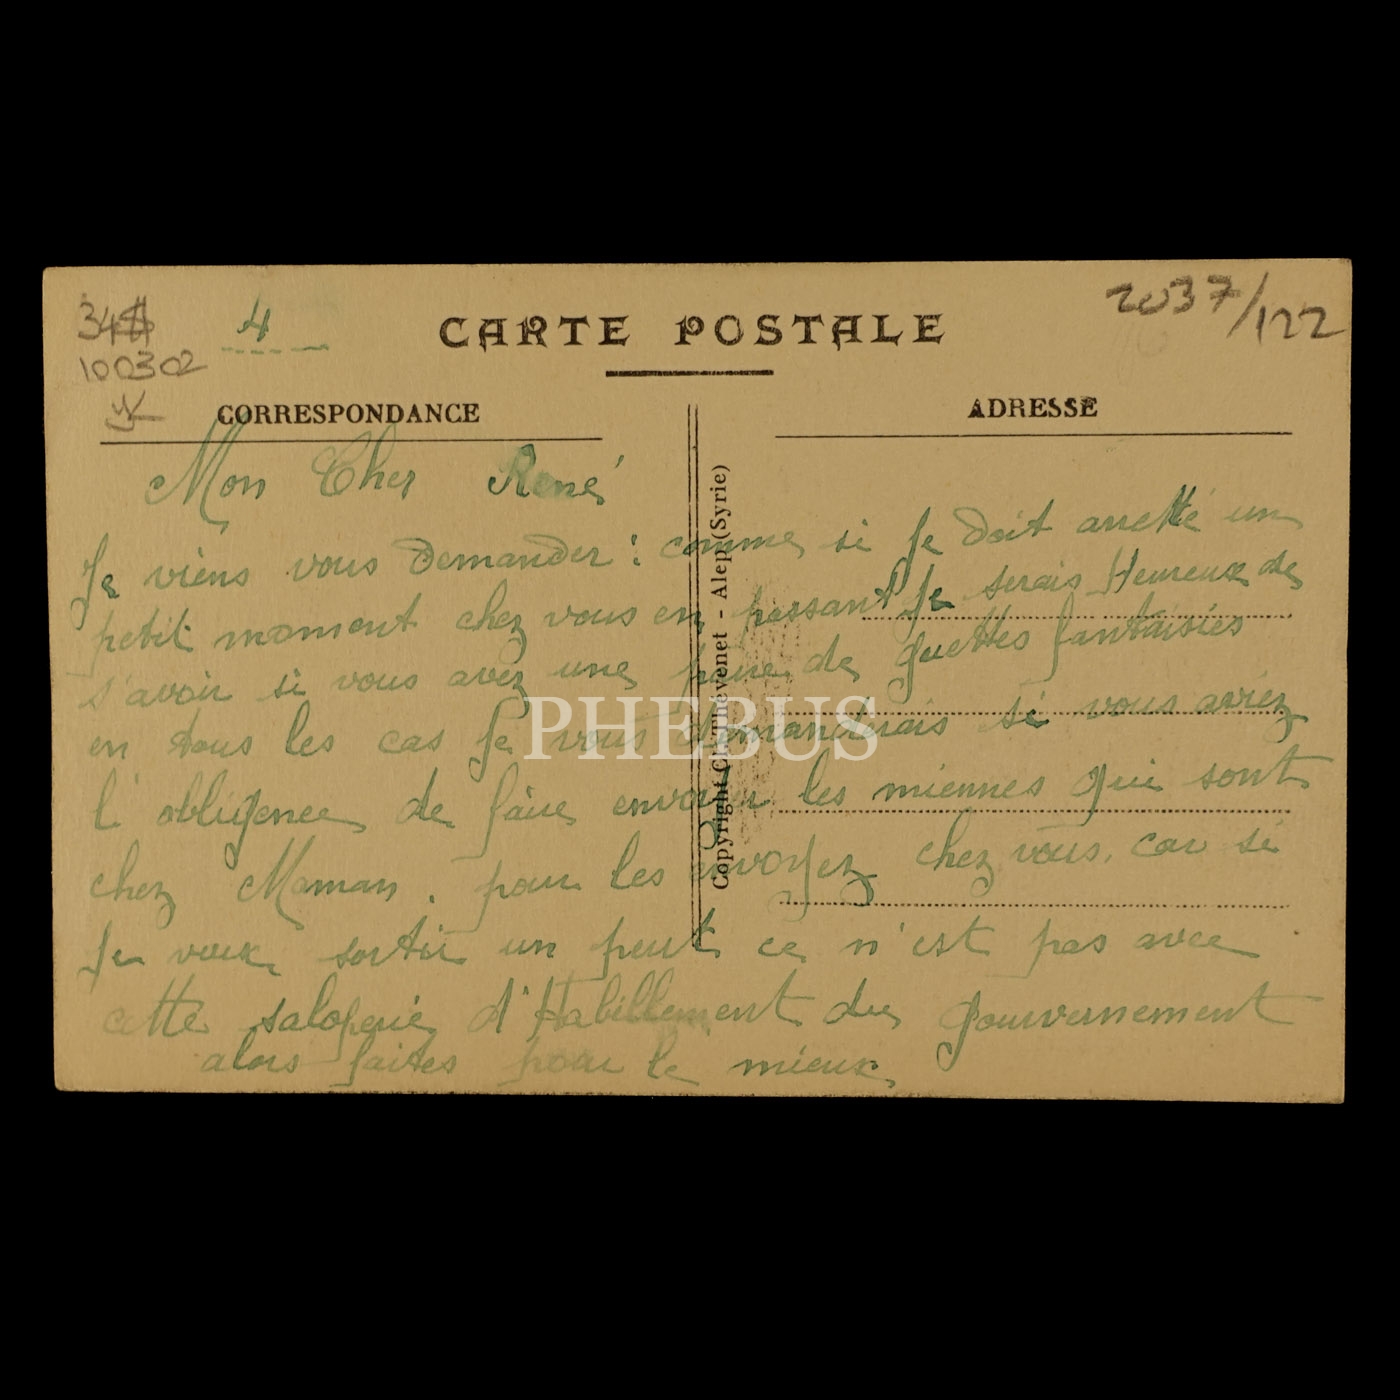 34
100302
4
CARTE POSTALE
2037/122
CORRESPONDANCE
ADRESSE
Copyright Ch. Thévenet - Alep (Syrie)
Mon Cher René
Je viens vous demander : comme si Je doit arretté un
petit moment chez vous en passant Je serais Heureux de
s'avoir si vous avez une paire de guettes fantaisies
en tous les cas Je vous demanderais si vous auriez
l'obligence de faire envoyer les miennes qui sont
chez Maman. pour les envoyez chez vous. car si
Je veux sortir un peut ce n'est pas avec
cette saloperie d'Habillement du gouvernement
alors faites pour le mieux
PHEBUS